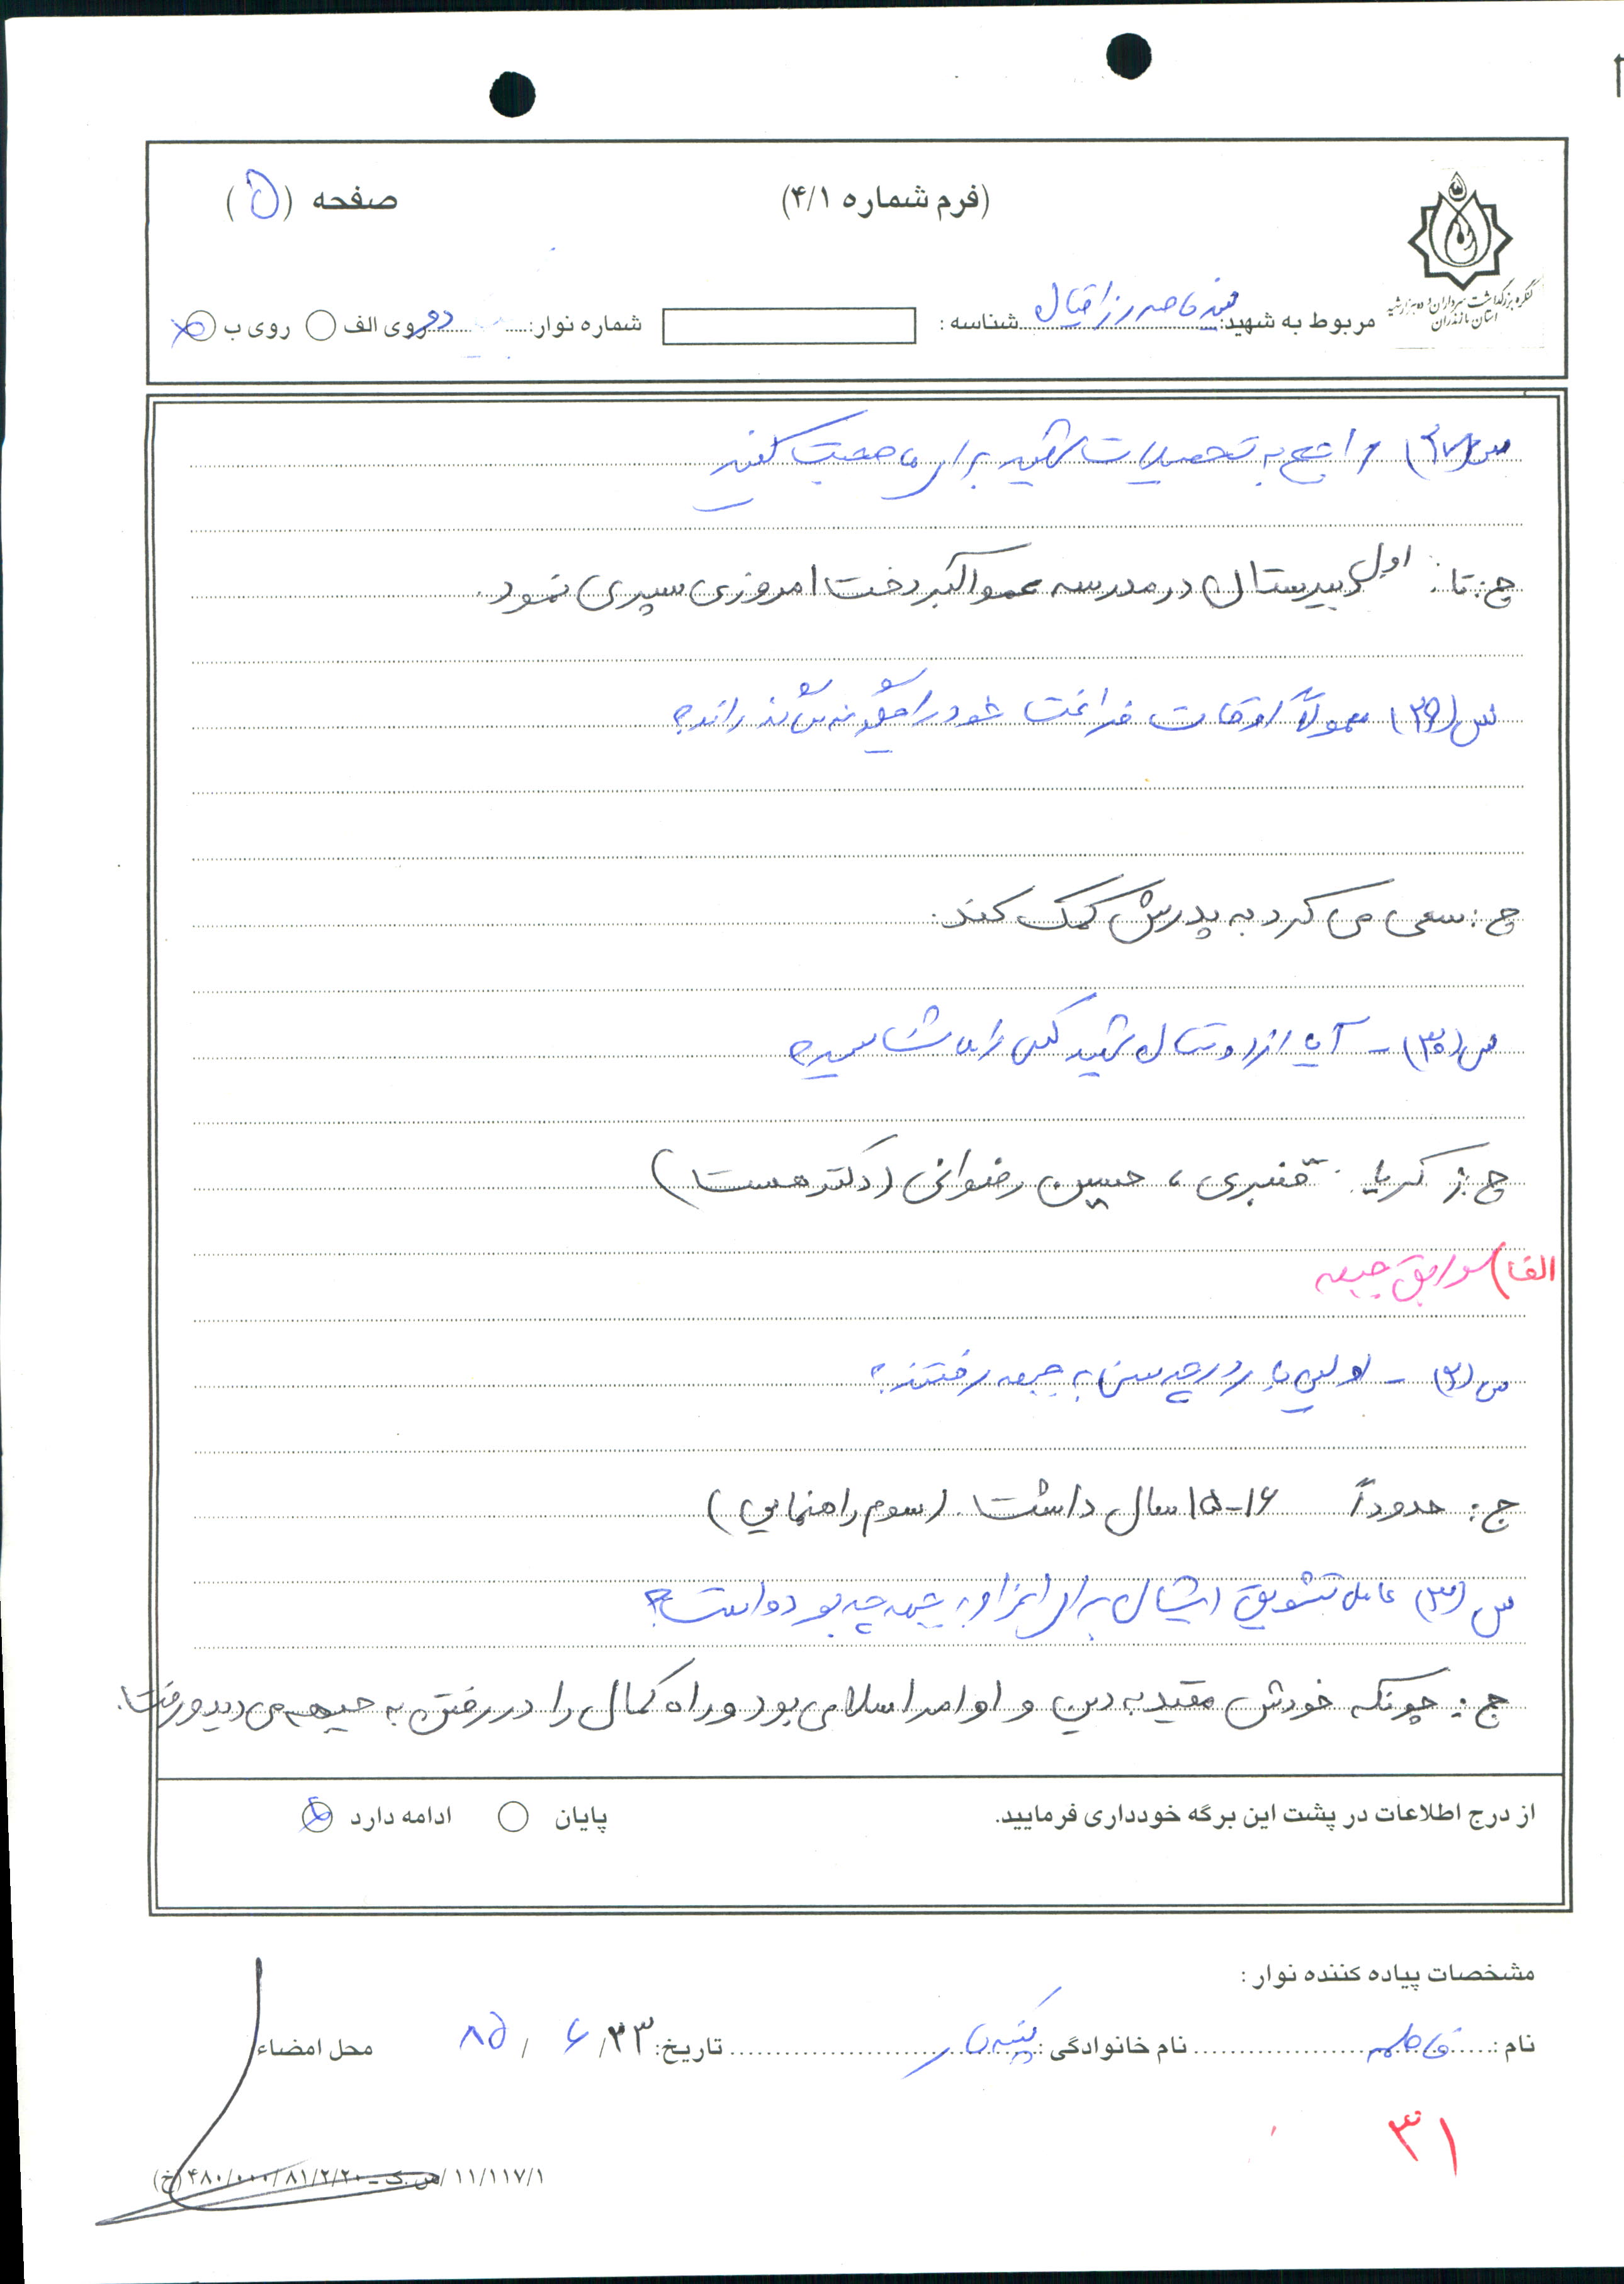 (فرم شماره ۴/۱)
صفحه (۵)
کنگره بزرگداشت سرداران و ده هزار شهید
استان مازندران
مربوط به شهید: شناسه :
شماره نوار: دو روی الف روی ب
س(۲۷) راجع به تحصیلات شهید برای ما صحبت کنید
ج: تا: اول دبیرستان در مدرسه عمو اکبر دخت امروزی سپری نمود.
س(۲۹) معمولاً اوقات فراغت خود را چگونه می گذراند؟
ج: سعی می کرد به پدرش کمک کند.
س(۳۰) - آیا از دوستان شهید کسی را می شناسید؟
ج: زکریا قنبری، حسین رضوانی (دکتر هست)
الف) سوابق جبهه
س - اولین بار در چه سنی به جبهه رفتند؟
ج: حدوداً ۱۶-۱۵ سال داشت. (سوم راهنمایی)
س عامل تشویق ایشان برای اعزام به جبهه چه بوده است؟
ج: چونکه خودش مقید به دین و اوامر اسلامی بود و راه کمال را در رفتن به جبهه می دید و رفت.
از درج اطلاعات در پشت این برگه خودداری فرمایید.
پایان ادامه دارد
مشخصات پیاده کننده نوار :
نام : فاطمه نام خانوادگی : تاریخ: ۲۳/ ۶ / ۸۵ محل امضاء
۳۱
۱۱/۱۱۷/۱/س.ک-۴۸۰/۰۰۰/۸۱/۲/۲۰(خ)